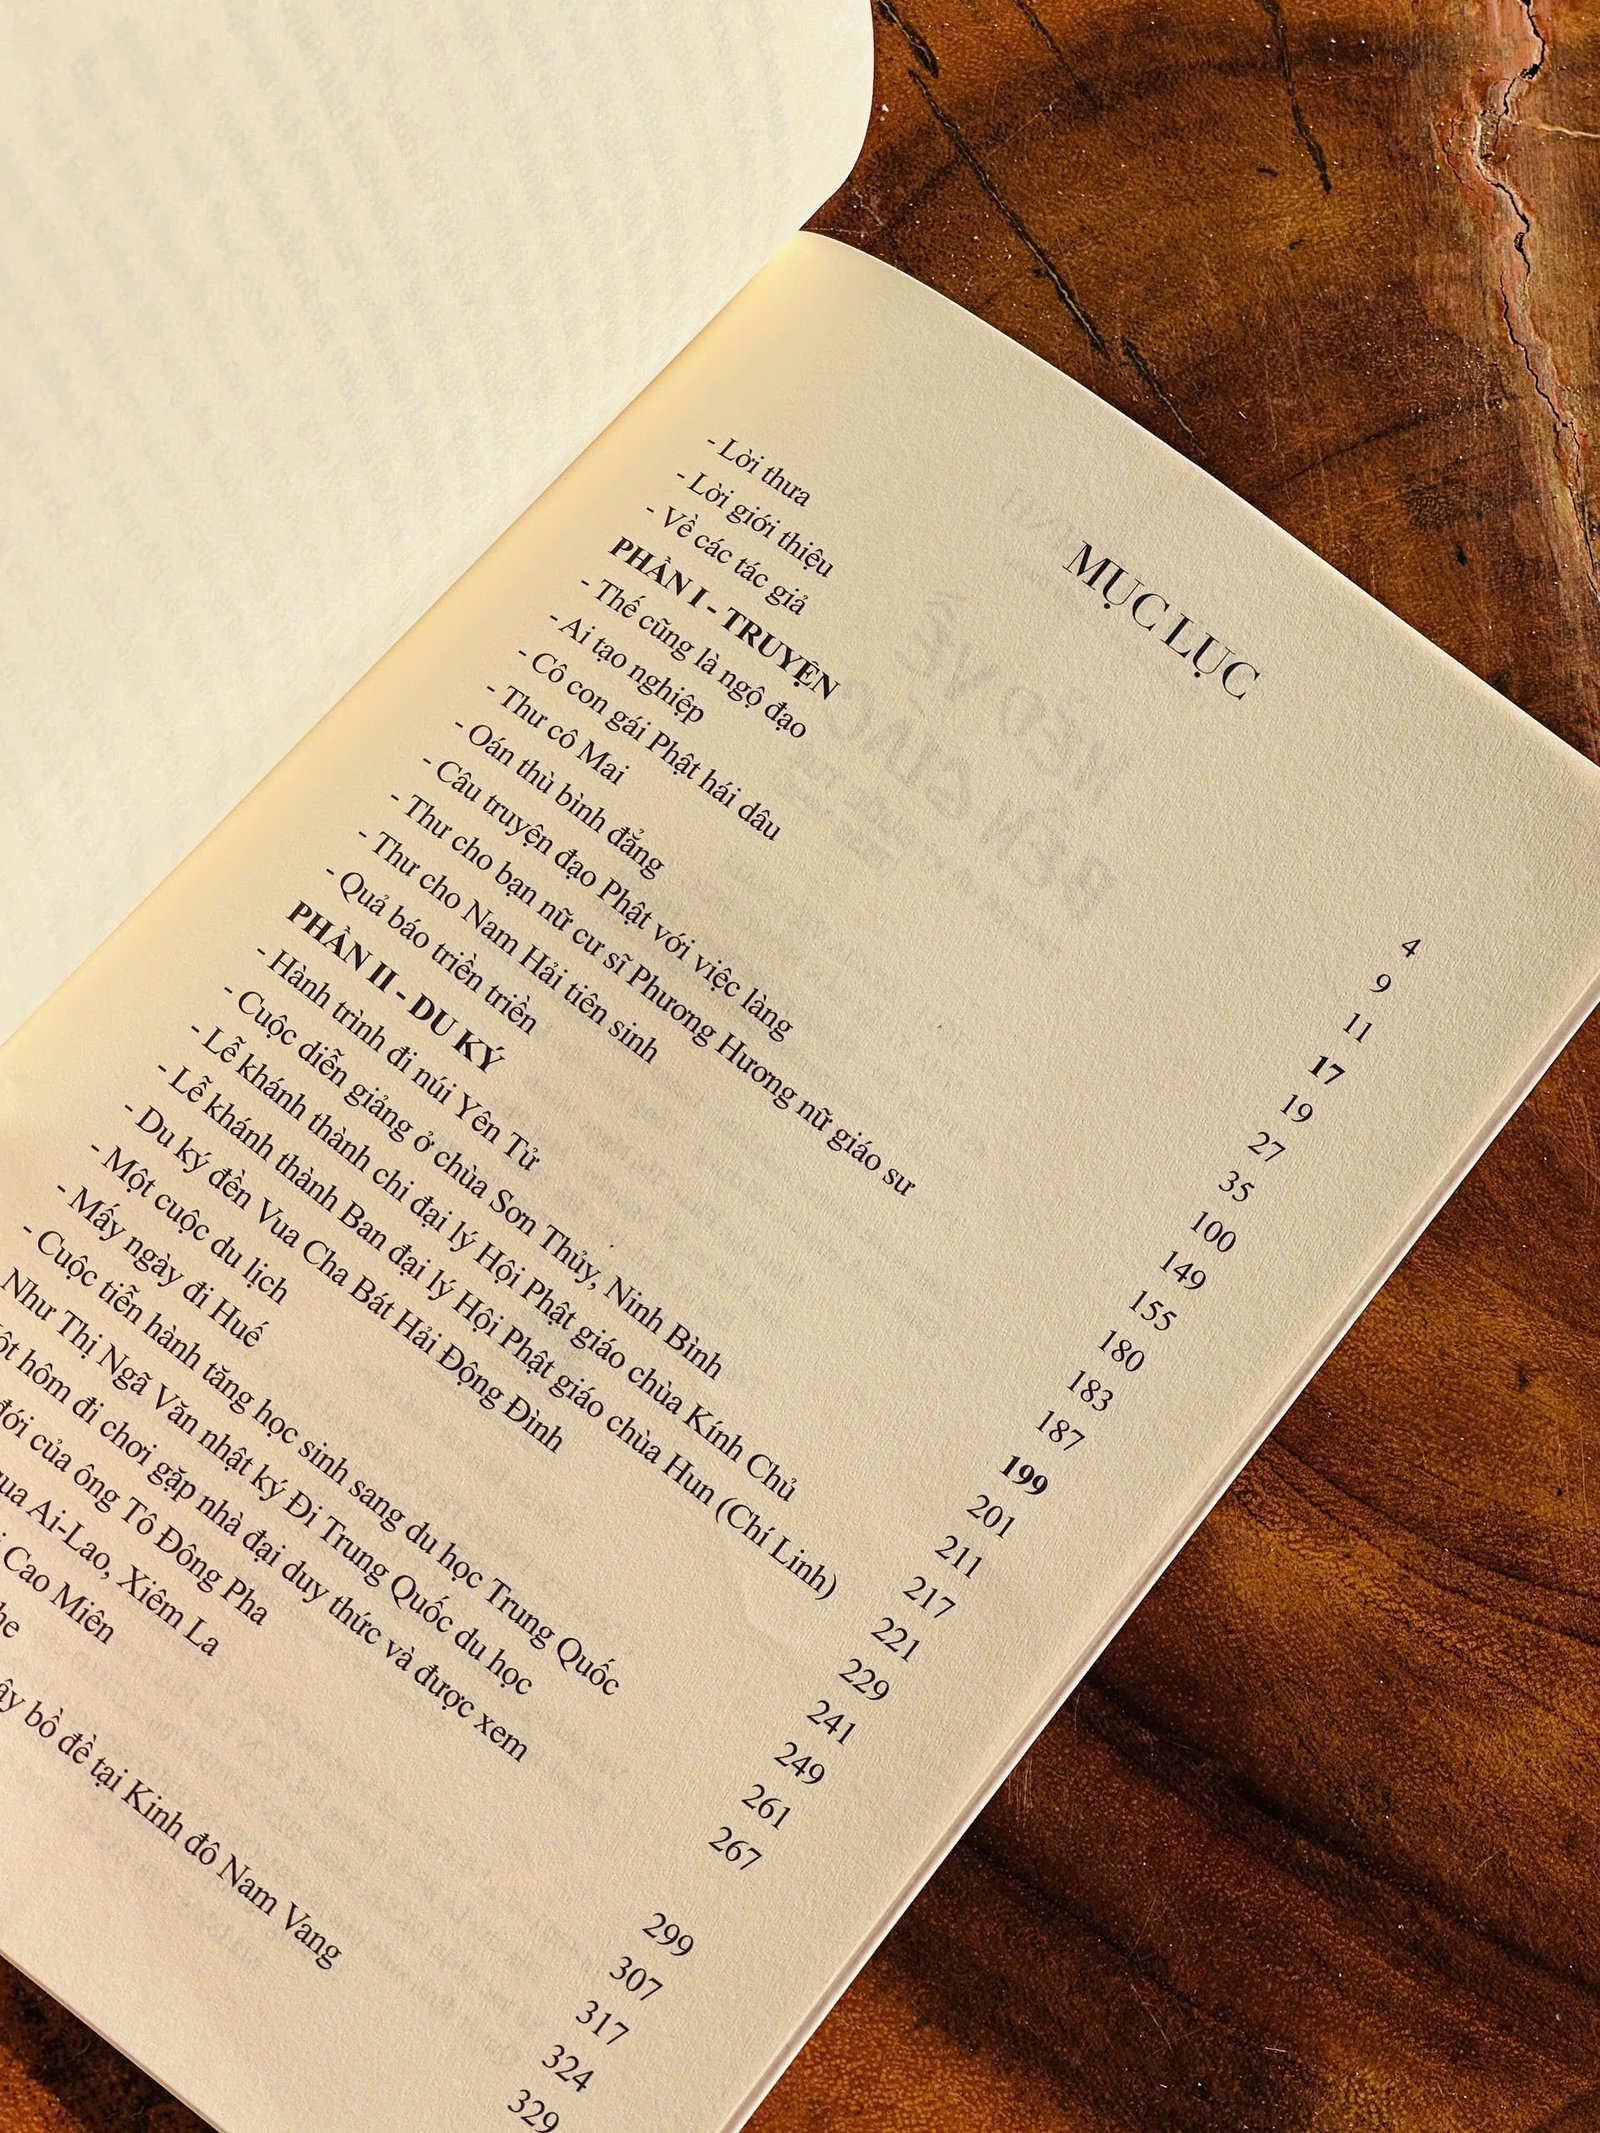 MỤC LỤC
- Lời thưa 4
- Lời giới thiệu 9
- Về các tác giả 11
PHẦN I - TRUYỆN 17
- Thế cũng là ngộ đạo 19
- Ai tạo nghiệp 27
- Cô con gái Phật hái dâu 35
- Thư cô Mai 100
- Oán thù bình đẳng 149
- Câu truyện đạo Phật với việc làng 155
- Thư cho bạn nữ cư sĩ Phương Hương nữ giáo sư 180
- Thư cho Nam Hải tiên sinh 183
- Quả báo triền triền 187
PHẦN II - DU KÝ 199
- Hành trình đi núi Yên Tử 201
- Cuộc diễn giảng ở chùa Sơn Thủy, Ninh Bình 211
- Lễ khánh thành chi đại lý Hội Phật giáo chùa Kính Chủ 217
- Lễ khánh thành Ban đại lý Hội Phật giáo chùa Hun (Chí Linh) 221
- Du ký đền Vua Cha Bát Hải Động Đình 229
- Một cuộc du lịch 241
- Mấy ngày đi Huế 249
- Cuộc tiễn hành tăng học sinh sang du học Trung Quốc 261
Như Thị Ngã Văn nhật ký Đi Trung Quốc du học 267
hôm đi chơi gặp nhà đại duy thức và được xem
đới của ông Tô Đông Pha 299
qua Ai-Lao, Xiêm La 307
Cao Miên 317
324
bồ đề tại Kinh đô Nam Vang 329